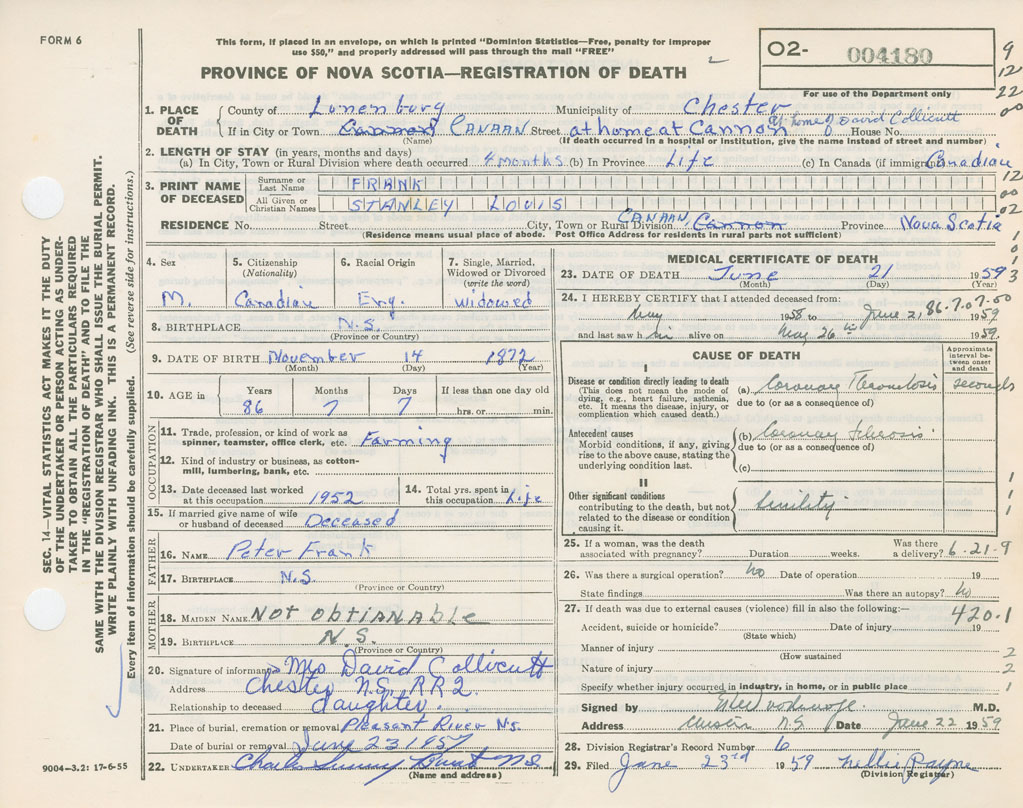 FORM 6
This form, if placed in an envelope, on which is printed "Dominion Statistics—Free, penalty for improper
use $50," and properly addressed will pass through the mail "FREE"
PROVINCE OF NOVA SCOTIA—REGISTRATION OF DEATH
O2- 004180
For use of the Department only
9
12
22
00
1. PLACE OF DEATH
County of Lunenburg Municipality of Chester
If in City or Town Cannon CANAAN Street at home at Cannon At home of David Collicutt House No.
(Name) (If death occurred in a hospital or institution, give the name instead of street and number)
2. LENGTH OF STAY (in years, months and days)
(a) In City, Town or Rural Division where death occurred 4 months (b) In Province Life (c) In Canada (if immigrant) Canadian
12
3. PRINT NAME OF DECEASED
Surname or Last Name FRANK
00
All Given or Christian Names STANLEY LOUIS
02
RESIDENCE No. Street City, Town or Rural Division CANAAN Cannon Province Nova Scotia
(Residence means usual place of abode. Post Office Address for residents in rural parts not sufficient)
1
0
1
3
4. Sex
M.
5. Citizenship
(Nationality)
Canadian
6. Racial Origin
Eng.
7. Single, Married,
Widowed or Divorced
(write the word)
Widowed
8. BIRTHPLACE N.S.
(Province or Country)
9. DATE OF BIRTH November 14 1872
(Month) (Day) (Year)
10. AGE in
Years Months Days If less than one day old
86 7 7 hrs. or min.
OCCUPATION
11. Trade, profession, or kind of work as
spinner, teamster, office clerk, etc. Farming
12. Kind of industry or business, as cotton-
mill, lumbering, bank, etc.
13. Date deceased last worked
at this occupation 1952
14. Total yrs. spent in
this occupation Life
15. If married give name of wife
or husband of deceased Deceased
FATHER
16. NAME Peter Frank
17. BIRTHPLACE N.S.
(Province or Country)
MOTHER
18. MAIDEN NAME NOT ObtIANAbLE
19. BIRTHPLACE N.S.
(Province or Country)
20. Signature of informant Mrs David Collicutt
Address Chester N.S. RR2.
Relationship to deceased daughter.
21. Place of burial, cremation or removal Pleasant River N.S.
Date of burial or removal June 23 1959
22. UNDERTAKER Charles N.S.
(Name and address)
MEDICAL CERTIFICATE OF DEATH
23. DATE OF DEATH June 21 1959
(Month) (Day) (Year)
24. I HEREBY CERTIFY that I attended deceased from:
86.7.07.00
May 1958 to June 21 1959
and last saw him alive on May 26th 1959.
CAUSE OF DEATH
Approximate
interval be-
tween onset
and death
I
Disease or condition directly leading to death
(This does not mean the mode of
dying, e.g., heart failure, asthenia,
etc. It means the disease, injury, or
complication which caused death.)
(a) Coronary Thrombosis seconds
due to (or as a consequence of)
Antecedent causes
Morbid conditions, if any, giving
rise to the above cause, stating the
underlying condition last.
(b) Coronary Sclerosis
due to (or as a consequence of)
(c)
II
Other significant conditions
contributing to the death, but not
related to the disease or condition
causing it.
Senility
1
1
1
25. If a woman, was the death
associated with pregnancy? Duration weeks.
Was there
a delivery? 6.21.9
26. Was there a surgical operation? No Date of operation 19
State findings Was there an autopsy? No
27. If death was due to external causes (violence) fill in also the following:—
420.1
Accident, suicide or homicide? Date of injury 19
(State which)
Manner of injury 2
(How sustained
Nature of injury 2
Specify whether injury occurred in industry, in home, or in public place 1
Signed by M.D.
Address Chester N.S. Date June 22 1959
28. Division Registrar's Record Number 6
29. Filed June 23rd 1959 Nellie Payne
(Division Registrar)
SEC. 14—VITAL STATISTICS ACT MAKES IT THE DUTY
OF THE UNDERTAKER OR PERSON ACTING AS UNDER-
TAKER TO OBTAIN ALL THE PARTICULARS REQUIRED
IN THE "REGISTRATION OF DEATH" AND TO FILE THE
SAME WITH THE DIVISION REGISTRAR WHO SHALL ISSUE THE BURIAL PERMIT.
WRITE PLAINLY WITH UNFADING INK. THIS IS A PERMANENT RECORD.
Every item of information should be carefully supplied. (See reverse side for instructions.)
9004-3.2: 17-6-55